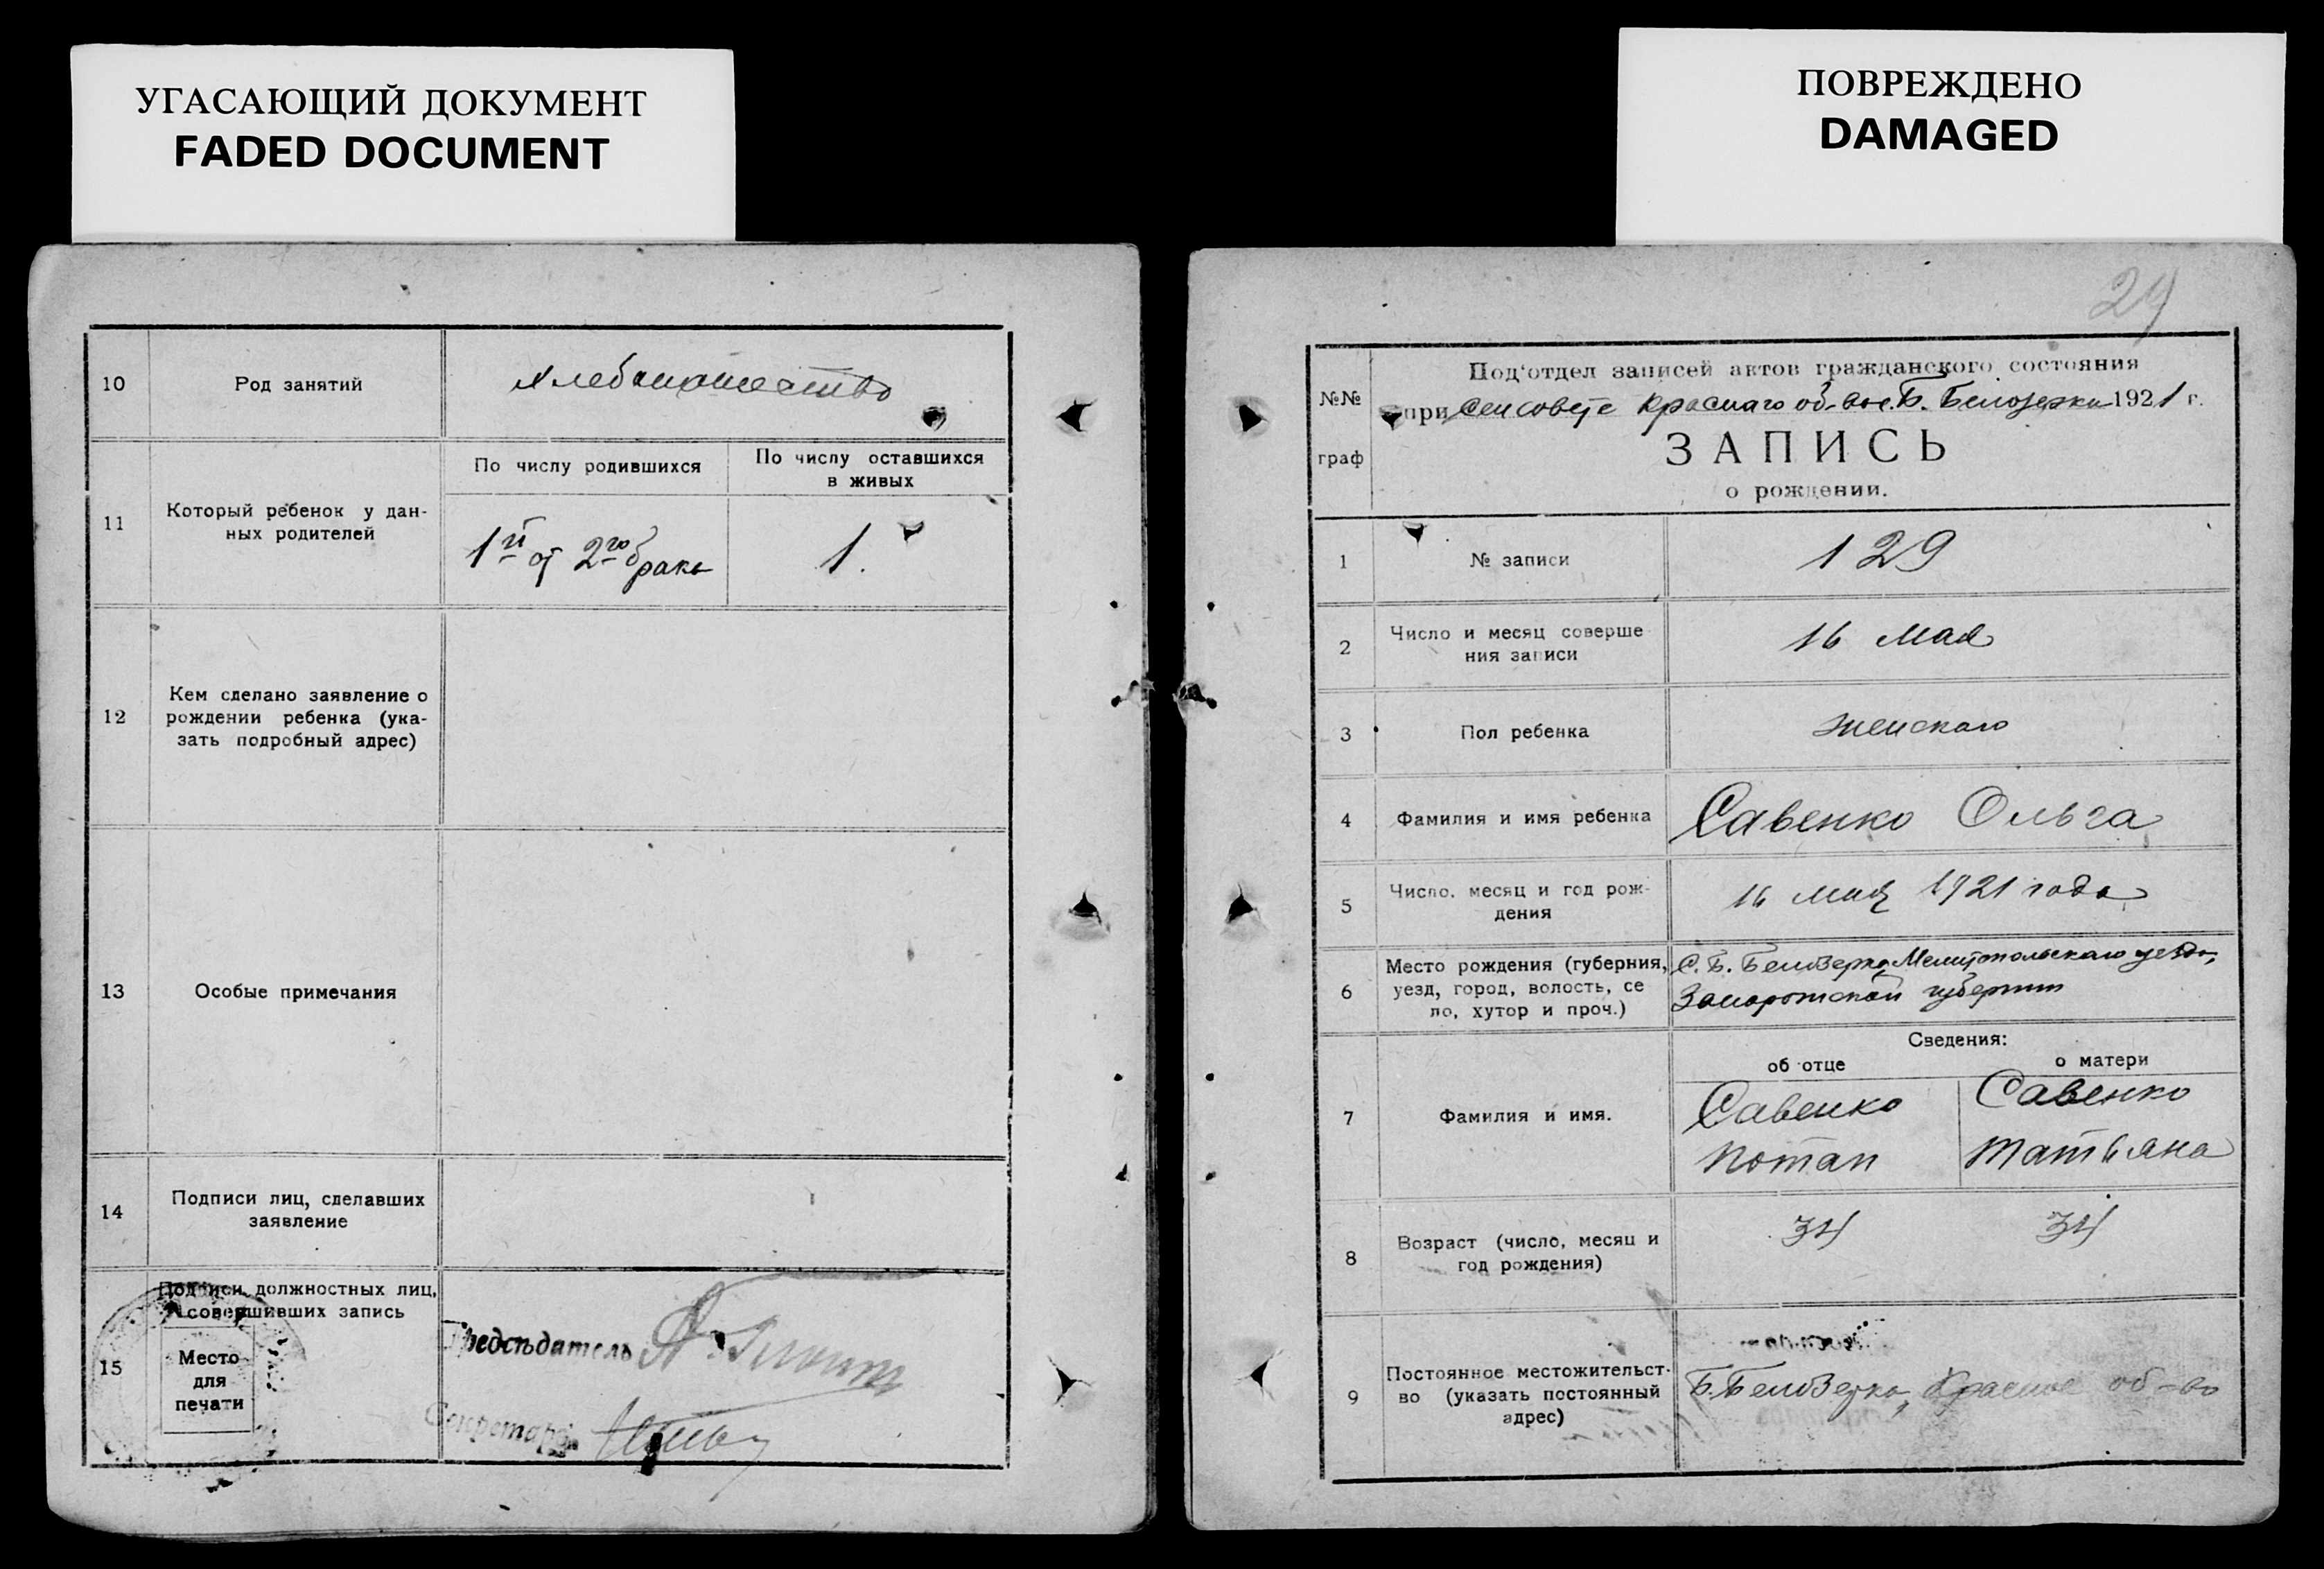 УГАСАЮЩИЙ ДОКУМЕНТ
FADED DOCUMENT
ПОВРЕЖДЕНО
DAMAGED
10
Род занятий
хлебопашество
11
Который ребенок у дан-
ных родителей
По числу родившихся
По числу оставшихся
в живых
1й от 2го брака
1.
12
Кем сделано заявление о
рождении ребенка (ука-
зать подробный адрес)
13
Особые примечания
14
Подписи лиц, сделавших
заявление
15
Подписи должностных лиц,
совершивших запись
Место
для
печати
Предсѣдатель
Секретарь
29
№№
граф
Под'отдел записей актов гражданского состояния
при Сельсовете Краснаго об-ва с. Б. Белозерки 1921 г.
ЗАПИСЬ
о рождении.
1
№ записи
129
2
Число и месяц соверше
ния записи
16 Мая
3
Пол ребенка
женскаго
4
Фамилия и имя ребенка
Савенко Ольга
5
Число. месяц и год рож-
дения
16 мая 1921 года
6
Место рождения (губерния,
уезд, город, волость, се
ло, хутор и проч.)
С. Б. Белозерка, Мелитопольскаго уезда,
Запорожской губернии
Сведения:
об отце
о матери
7
Фамилия и имя.
Савенко
Потап
Савенко
Татьяна
8
Возраст (число, месяц и
год рождения)
34
34
9
Постоянное местожительст-
во (указать постоянный
адрес)
Б. Белозерка, Красное об-во